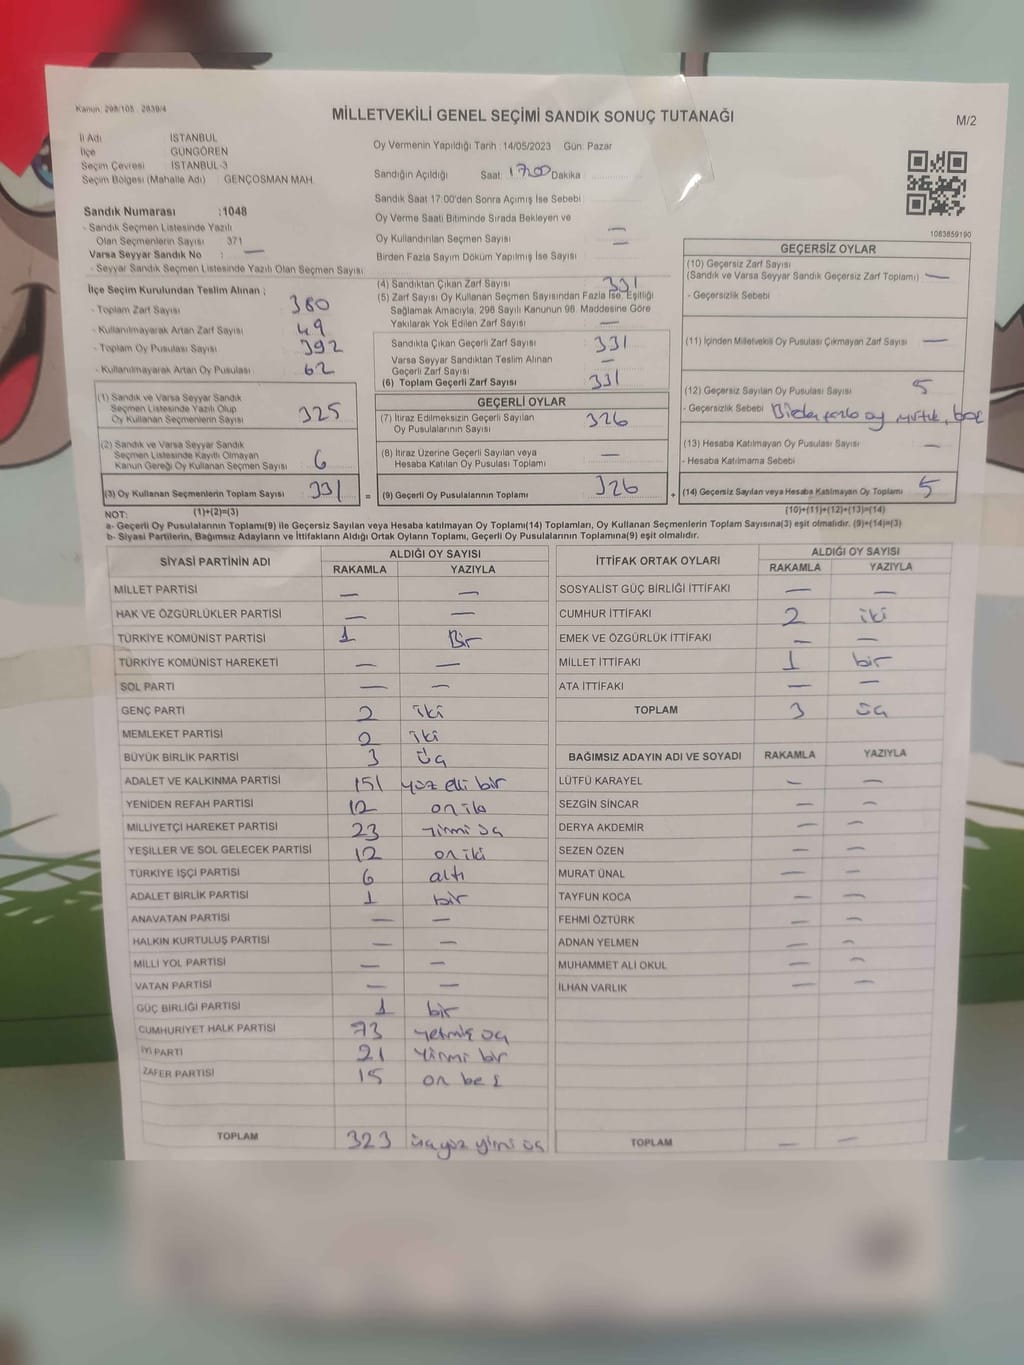 Kanun: 298/105 . 2839/4
MİLLETVEKİLİ GENEL SEÇİMİ SANDIK SONUÇ TUTANAĞI
M/2
İl Adı İSTANBUL
İlçe GÜNGÖREN
Seçim Çevresi İSTANBUL-3
Seçim Bölgesi (Mahalle Adı) GENÇOSMAN MAH.
Oy Vermenin Yapıldığı Tarih : 14/05/2023 Gün: Pazar
Sandığın Açıldığı Saat: 17.00 Dakika
Sandık Saat 17:00'den Sonra Açılmış İse Sebebi :
Oy Verme Saati Bitiminde Sırada Bekleyen ve
Oy Kullandırılan Seçmen Sayısı —
Birden Fazla Sayım Döküm Yapılmış İse Sayısı —
1083859190
Sandık Numarası :1048
- Sandık Seçmen Listesinde Yazılı
Olan Seçmenlerin Sayısı 371
Varsa Seyyar Sandık No : —
- Seyyar Sandık Seçmen Listesinde Yazılı Olan Seçmen Sayısı
İlçe Seçim Kurulundan Teslim Alınan ;
- Toplam Zarf Sayısı 380
- Kullanılmayarak Artan Zarf Sayısı 49
- Toplam Oy Pusulası Sayısı 392
- Kullanılmayarak Artan Oy Pusulası 62
(1) Sandık ve Varsa Seyyar Sandık
Seçmen Listesinde Yazılı Olup
Oy Kullanan Seçmenlerin Sayısı 325
(2) Sandık ve Varsa Seyyar Sandık
Seçmen Listesinde Kayıtlı Olmayan
Kanun Gereği Oy Kullanan Seçmen Sayısı 6
(3) Oy Kullanan Seçmenlerin Toplam Sayısı 331 =
(4) Sandıktan Çıkan Zarf Sayısı 331
(5) Zarf Sayısı Oy Kullanan Seçmen Sayısından Fazla İse, Eşitliği
Sağlamak Amacıyla, 298 Sayılı Kanunun 98. Maddesine Göre
Yakılarak Yok Edilen Zarf Sayısı —
Sandıkta Çıkan Geçerli Zarf Sayısı 331
Varsa Seyyar Sandıktan Teslim Alınan
Geçerli Zarf Sayısı —
(6) Toplam Geçerli Zarf Sayısı 331
GEÇERLİ OYLAR
(7) İtiraz Edilmeksizin Geçerli Sayılan
Oy Pusulalarının Sayısı 326
(8) İtiraz Üzerine Geçerli Sayılan veya
Hesaba Katılan Oy Pusulası Toplamı —
(9) Geçerli Oy Pusulalarının Toplamı 326 +
GEÇERSİZ OYLAR
(10) Geçersiz Zarf Sayısı
(Sandık ve Varsa Seyyar Sandık Geçersiz Zarf Toplamı) —
- Geçersizlik Sebebi
(11) İçinden Milletvekili Oy Pusulası Çıkmayan Zarf Sayısı —
(12) Geçersiz Sayılan Oy Pusulası Sayısı 5
- Geçersizlik Sebebi Birden fazla oy
(13) Hesaba Katılmayan Oy Pusulası Sayısı —
- Hesaba Katılmama Sebebi
(14) Geçersiz Sayılan veya Hesaba Katılmayan Oy Toplamı 5
NOT: (1)+(2)=(3) (10)+(11)+(12)+(13)=(14)
a- Geçerli Oy Pusulalarının Toplamı(9) ile Geçersiz Sayılan veya Hesaba katılmayan Oy Toplamı(14) Toplamları, Oy Kullanan Seçmenlerin Toplam Sayısına(3) eşit olmalıdır. (9)+(14)=(3)
b- Siyasi Partilerin, Bağımsız Adayların ve İttifakların Aldığı Ortak Oyların Toplamı, Geçerli Oy Pusulalarının Toplamına(9) eşit olmalıdır.
SİYASİ PARTİNİN ADI ALDIĞI OY SAYISI
RAKAMLA YAZIYLA
MİLLET PARTİSİ — —
HAK VE ÖZGÜRLÜKLER PARTİSİ — —
TÜRKİYE KOMÜNİST PARTİSİ 1 Bir
TÜRKİYE KOMÜNİST HAREKETİ — —
SOL PARTİ — —
GENÇ PARTİ 2 iki
MEMLEKET PARTİSİ 2 iki
BÜYÜK BİRLİK PARTİSİ 3 üç
ADALET VE KALKINMA PARTİSİ 151 yüz elli bir
YENİDEN REFAH PARTİSİ 12 on iki
MİLLİYETÇİ HAREKET PARTİSİ 23 yirmi üç
YEŞİLLER VE SOL GELECEK PARTİSİ 12 on iki
TÜRKİYE İŞÇİ PARTİSİ 6 altı
ADALET BİRLİK PARTİSİ 1 bir
ANAVATAN PARTİSİ — —
HALKIN KURTULUŞ PARTİSİ — —
MİLLİ YOL PARTİSİ — —
VATAN PARTİSİ — —
GÜÇ BİRLİĞİ PARTİSİ 1 bir
CUMHURİYET HALK PARTİSİ 73 yetmiş üç
İYİ PARTİ 21 yirmi bir
ZAFER PARTİSİ 15 on beş
TOPLAM 323 üç yüz yirmi üç
İTTİFAK ORTAK OYLARI ALDIĞI OY SAYISI
RAKAMLA YAZIYLA
SOSYALİST GÜÇ BİRLİĞİ İTTİFAKI — —
CUMHUR İTTİFAKI 2 iki
EMEK VE ÖZGÜRLÜK İTTİFAKI — —
MİLLET İTTİFAKI 1 bir
ATA İTTİFAKI — —
TOPLAM 3 üç
BAĞIMSIZ ADAYIN ADI VE SOYADI RAKAMLA YAZIYLA
LÜTFÜ KARAYEL — —
SEZGİN SİNCAR — —
DERYA AKDEMİR — —
SEZEN ÖZEN — —
MURAT ÜNAL — —
TAYFUN KOCA — —
FEHMİ ÖZTÜRK — —
ADNAN YELMEN — —
MUHAMMET ALİ OKUL — —
İLHAN VARLIK — —
TOPLAM — —